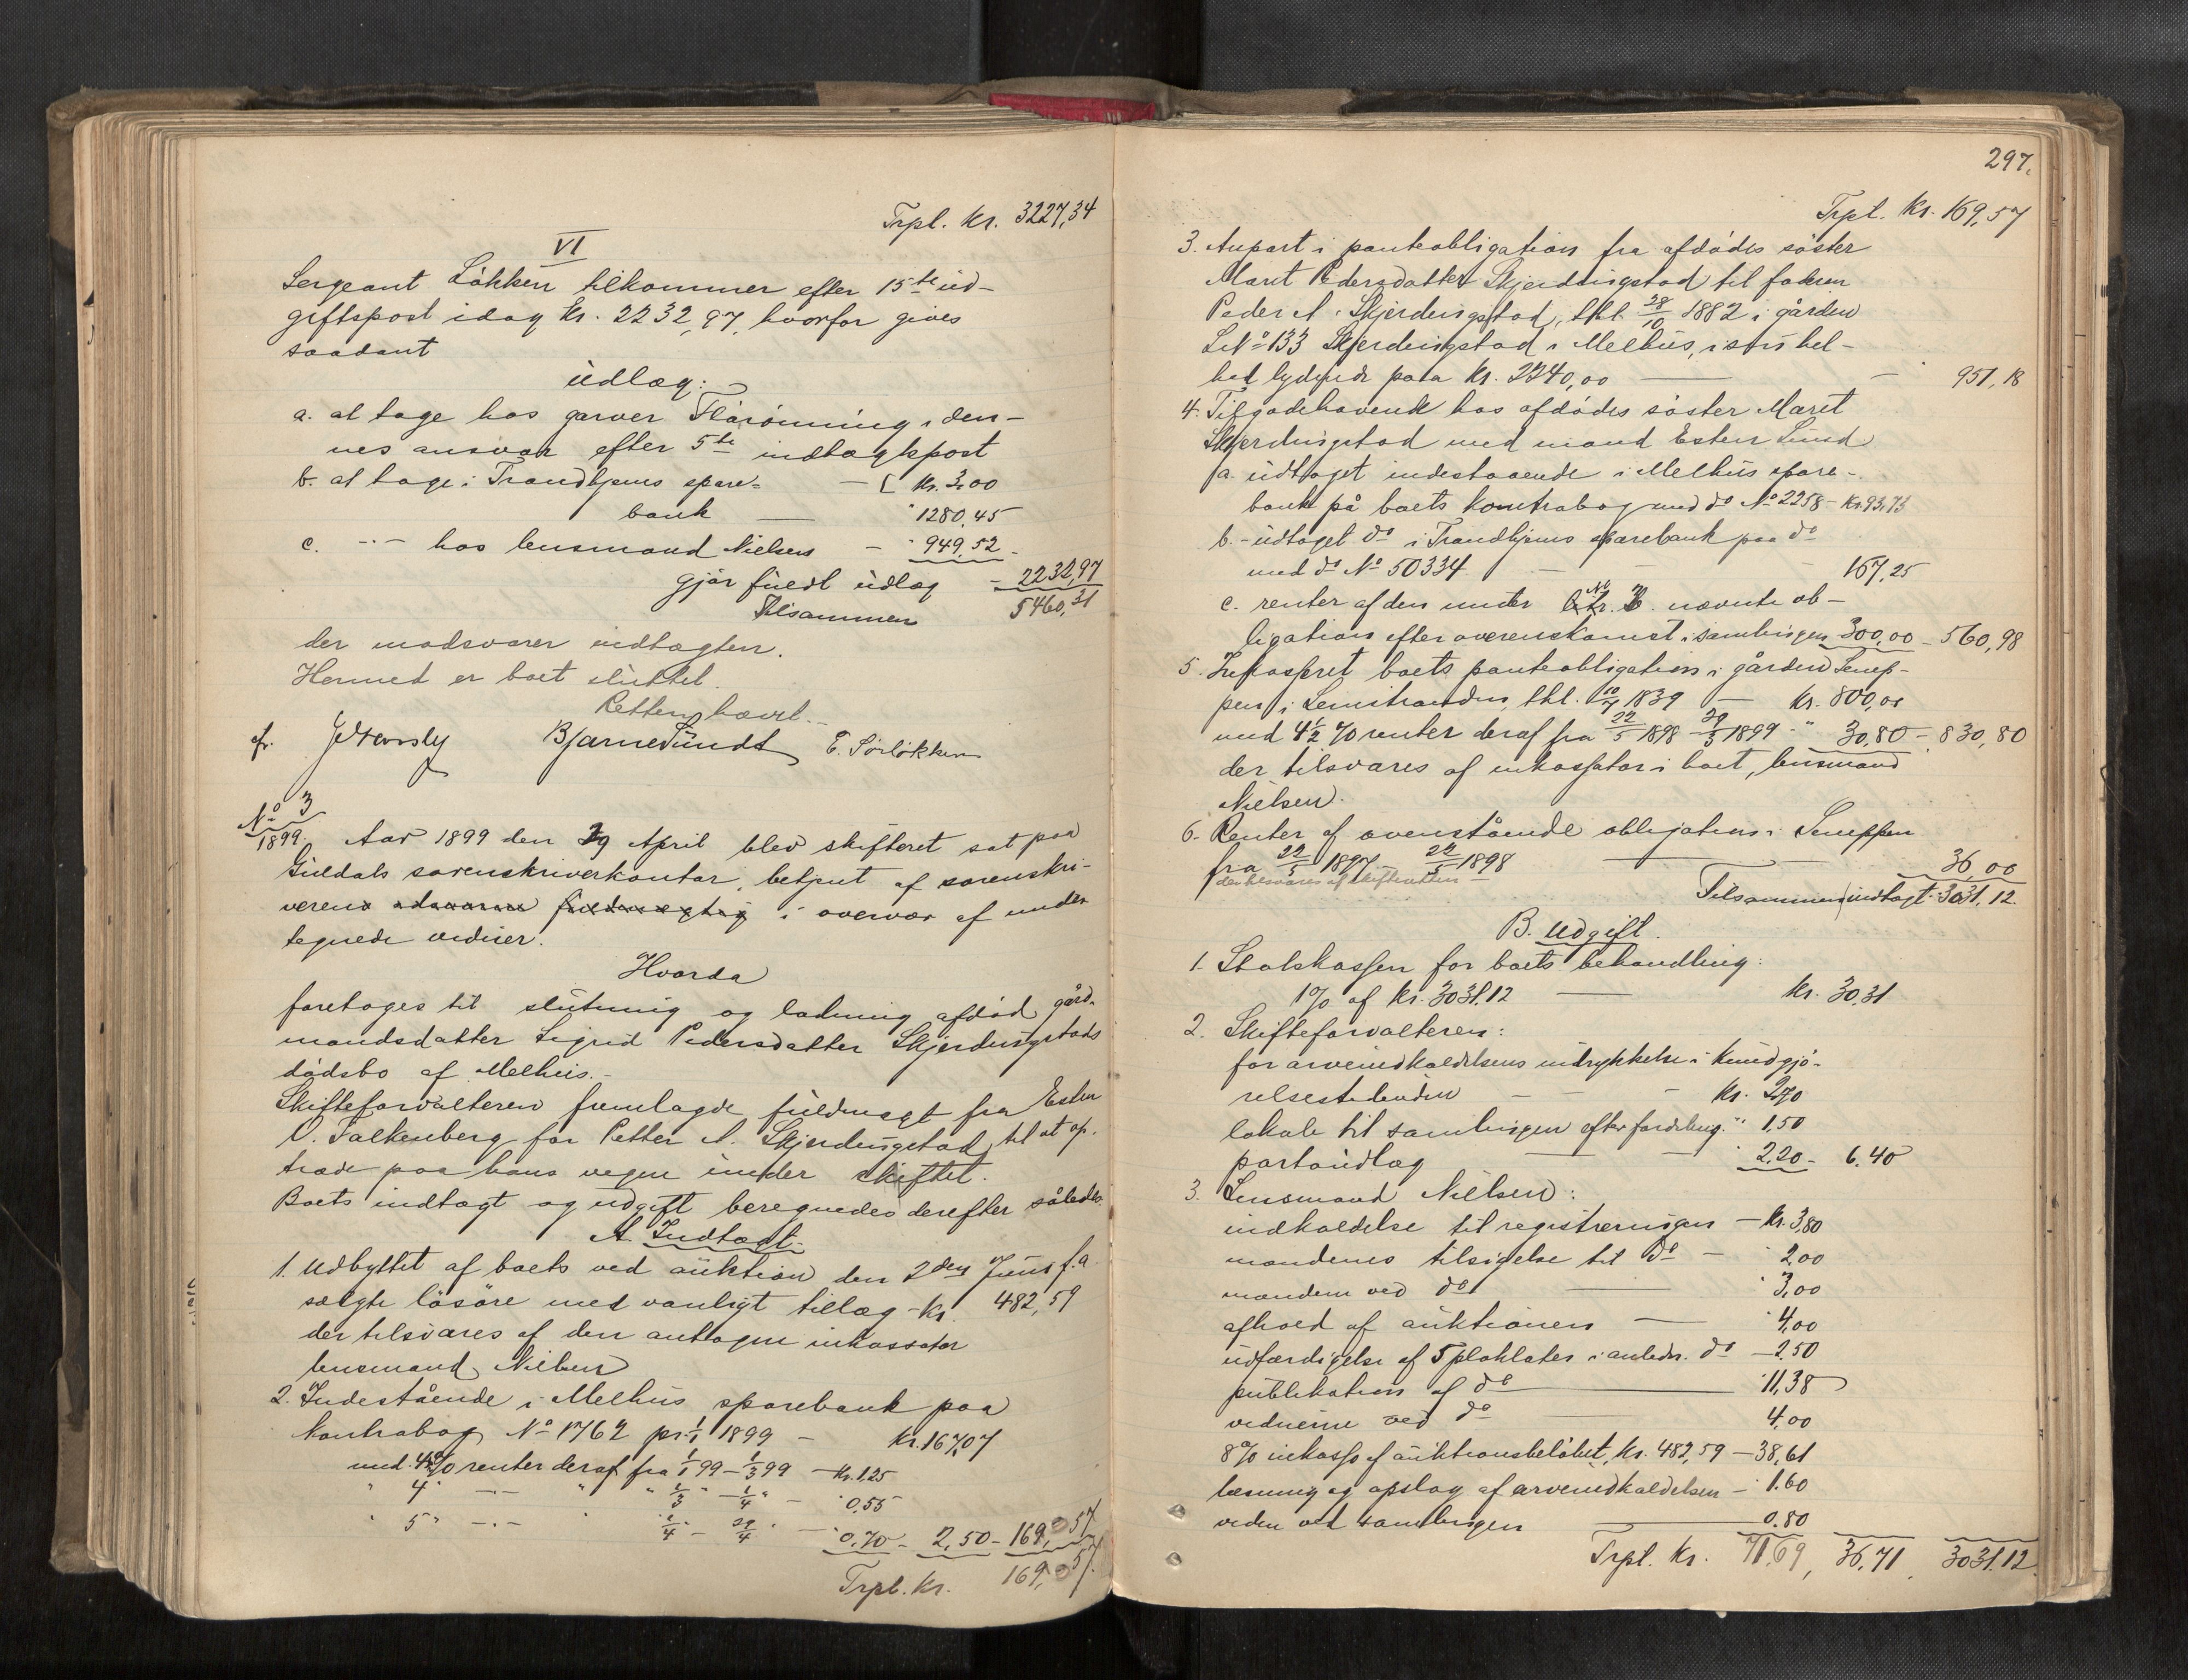 Trpt. Kr. 3227,34
VI
Sergeant Løkken tilkommer efter 15de ud-
giftspost idag Kr. 2232,97, hvorfor gives
saadant
Udlæg:
a. at tage hos garver Flårønning i den-
nes ansvar efter 5te indtægtspost
b. at tage i Trondhjems spare- — Kr. 3,00
bank — " 1280,45
c. -"- hos lensmand Nielsen — " 949,52
gjør fuldt udlæg — 2232,97
Tilsammen 5460,31
der modsvarer indtægten.
Hermed er boet sluttet.
Retten hævet.
Bjarne Sundt E. Sørløkken
No 3
1899. Aar 1899 den 29 April blev skifteret sat paa
Guldals sorenskriverkontor, betjent af sorenskri-
veren i overvær af under
tegnede vidner.
Hvorda
foretoges til slutning og lodning afdød gård-
mandsdatter Sigrid Pedersdatter Skjerdingstads
dødsbo af Melhus.-
Skifteforvalteren fremlagde fuldmagt fra Esten
O. Falkenberg for Petter A. Skjerdingstad til at op-
træde paa hans vegne under skiftet.
Boets indtægt og udgift beregnedes derefter således
A. Indtægt.
1. Udbyttet af boets ved auktion den 2den Juni f.a.
solgte løsøre med vanligt tillæg - Kr. 482,59
der tilsvares af den antagne inkassator
lensmand Nielsen
2. Indestående i Melhus sparebank paa
Kontrabog No 1762 pr. 1/1 1899 — Kr. 167,07
med 4½% renter deraf fra 1/1 99 – 1/3 99 — Kr. 1,25
" 4 " -"- " " 1/3 " – 1/4 " — " 0,55
" 5 " -"- " 1/4 " – 29/4 " — " 0,70 - 2,50 - 169,57
Trpt. Kr. 169,57
297.
Trpt. Kr. 169,57
3. Anpart i panteobligation fra afdødes søster
Marit Pedersdatter Skjerdingstad til faderen
Peder A. Skjerdingstad, thl. 28/10 1882 i gården
L.No 133 Skjerdingstad i Melhus, i sin hel-
hed lydende paa Kr. 2240,00 — " 951,18
4. Tilgodehavende hos afdødes søster Marit
Skjerdingstad med mand Esten Lund
a. udtaget indestaaende i Melhus spare-
bank på boets kontrabog med do No 2258 - Kr. 93,73
b. - udtaget do i Trondhjems sparebank paa do
med do No 50334 — " 167,25
c. renter af den under No 3. nævnte ob-
ligation efter overenskomst i samlingen 300,00 - 560,98
5. Inkasseret boets panteobligation i gården
i Leinstranden, thl. 10/7 1839 — Kr. 800,00
med 4½% renter deraf fra 22/5 1898 – 29/3 1899 - " 30,80 - 830,80
der tilsvares af inkassator i boet, lensmand
Nielsen.
6. Renter af ovenstående obligation i
fra 22/5 1897 – 22/5 1898 — 36,00
der tilsvares af skifteretten
Tilsammen indtægt 3031,12.
B. Udgift.
1. Statskassen for boets behandling:
1% af Kr. 3031,12 — Kr. 30,31
2. Skifteforvalteren:
for arveindkaldelsens indrykkelse i Kundgjø-
relsestidenden — Kr. 2,70
lokale til samlingen efter fordeling " 1,50
portoudlæg — " 2,20 - 6,40
3. Lensmand Nielsen:
indkaldelse til registreringen — Kr. 3,80
mændenes tilsigelse til do — " 2,00
mændene ved do — " 3,00
afhold af auktionen — " 4,00
udfærdigelse af 5 plakater i anledn. do — 2,50
publikation af do — " 11,38
vidnerne ved do — 4,00
8% inkasso af auktionsbeløbet, Kr. 482,59 — 38,61
læsning og opslag af arveindkaldelsen — " 1,60
vidne ved samlingen — 0,80
Trpt. Kr. 71,69, 36,71, 3031,12